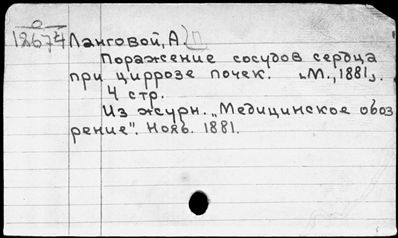 0
12674 Ланговой, А П
Поражение сосудов сердца
при циррозе почек. "М., 1881".
4 стр.
Из журн. "Медицинское обоз
рение". Нояб. 1881.